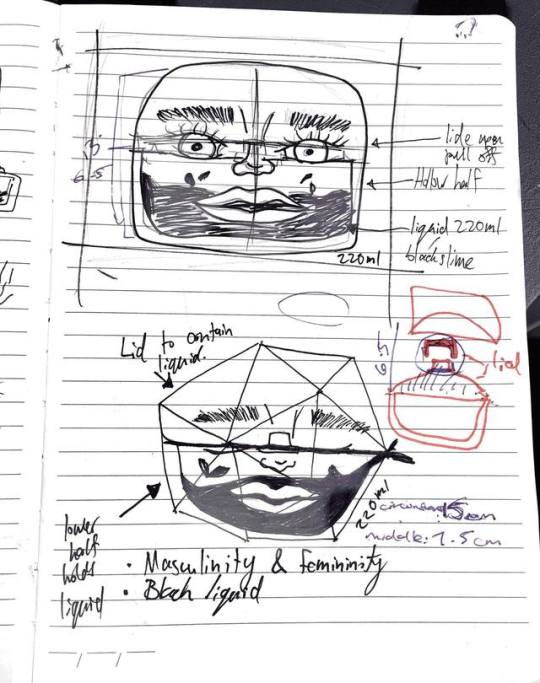 lide open
pull off
Hollow half
liquid 220ml
black slime
220ml
6.5
Lid to contain
liquid.
lid
220ml
15cm
middle: 7.5cm
lower
half
holds
liquid
· Masculinity & Femininity
· Black liquid